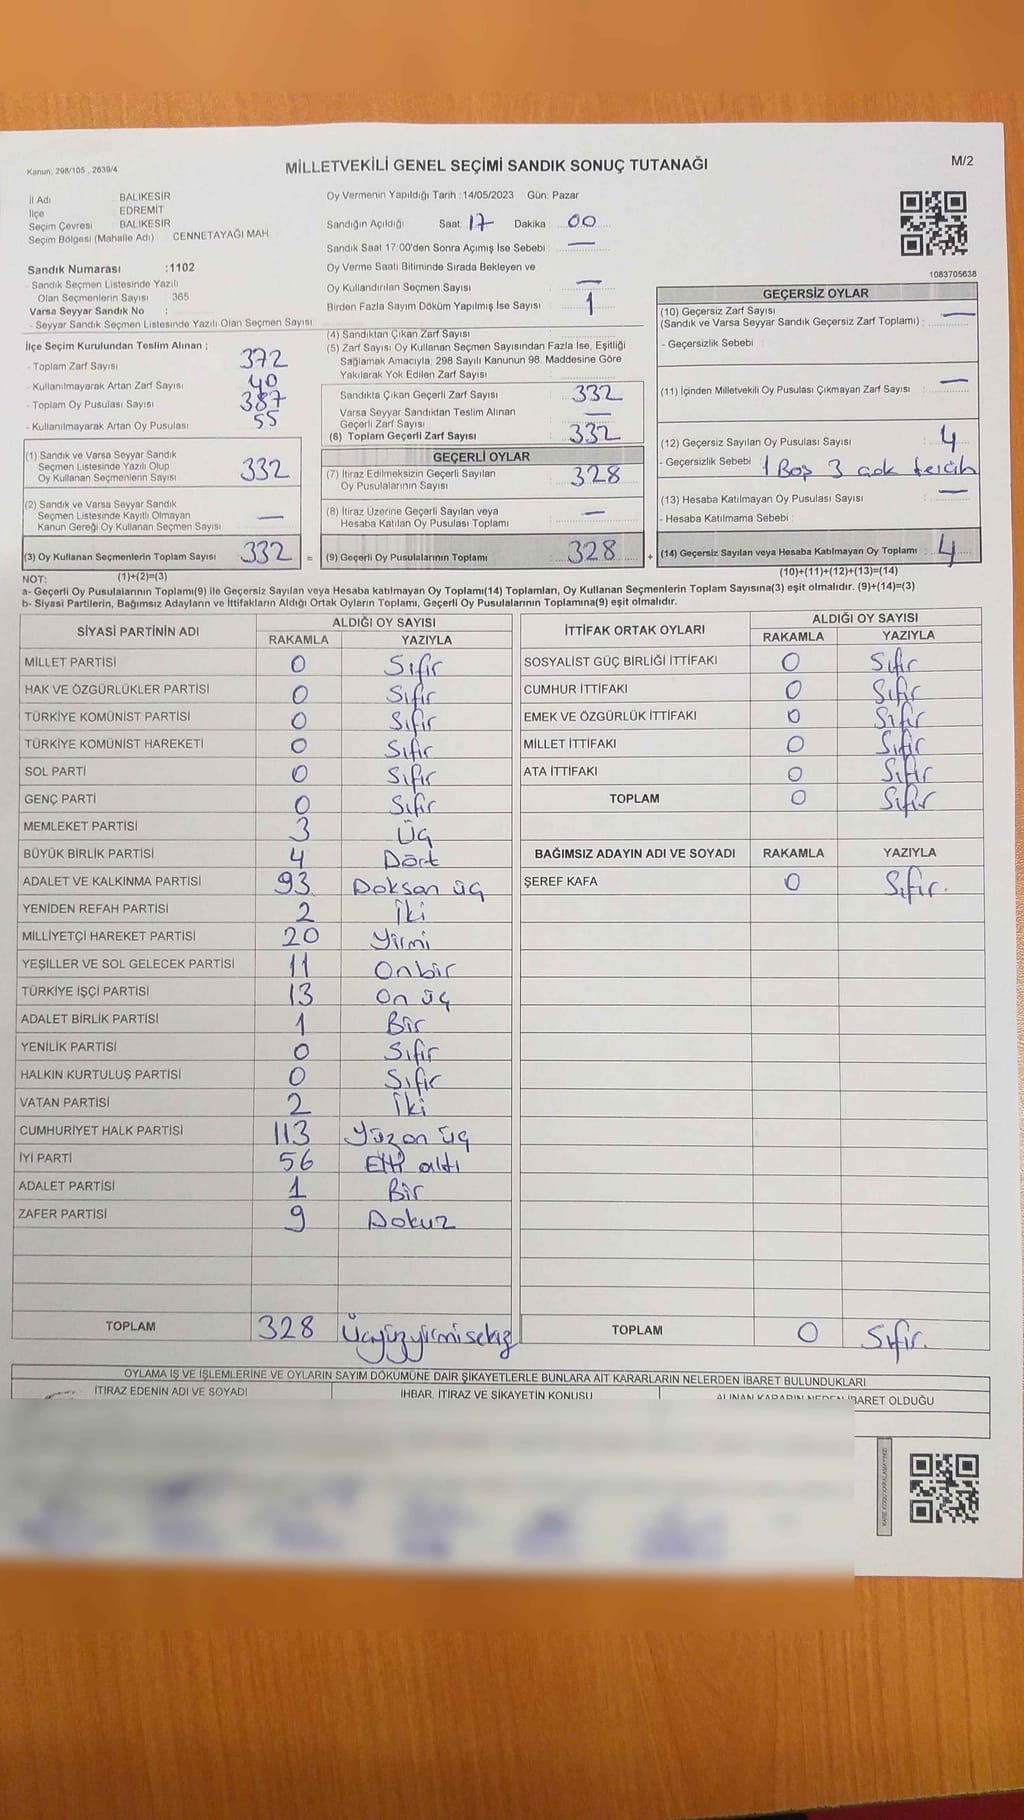 Kanun, 298/105 , 2839/4
MİLLETVEKİLİ GENEL SEÇİMİ SANDIK SONUÇ TUTANAĞI
M/2
İl Adı : BALIKESİR
İlçe : EDREMİT
Seçim Çevresi : BALIKESİR
Seçim Bölgesi (Mahalle Adı) : CENNETAYAĞI MAH.
Oy Vermenin Yapıldığı Tarih :14/05/2023 Gün: Pazar
Sandığın Açıldığı Saat: 17 Dakika : 00
Sandık Saat 17:00'den Sonra Açımış İse Sebebi : —
Oy Verme Saati Bitiminde Sırada Bekleyen ve
Oy Kullandırılan Seçmen Sayısı : —
Birden Fazla Sayım Döküm Yapılmış İse Sayısı : 1
1083705638
Sandık Numarası :1102
- Sandık Seçmen Listesinde Yazılı
Olan Seçmenlerin Sayısı : 365
Varsa Seyyar Sandık No :
- Seyyar Sandık Seçmen Listesinde Yazılı Olan Seçmen Sayısı:
İlçe Seçim Kurulundan Teslim Alınan ;
- Toplam Zarf Sayısı : 372
- Kullanılmayarak Artan Zarf Sayısı : 40
- Toplam Oy Pusulası Sayısı : 387
- Kullanılmayarak Artan Oy Pusulası : 55
(1) Sandık ve Varsa Seyyar Sandık
Seçmen Listesinde Yazılı Olup
Oy Kullanan Seçmenlerin Sayısı : 332
(2) Sandık ve Varsa Seyyar Sandık
Seçmen Listesinde Kayıtlı Olmayan
Kanun Gereği Oy Kullanan Seçmen Sayısı : —
(3) Oy Kullanan Seçmenlerin Toplam Sayısı : 332 =
(4) Sandıktan Çıkan Zarf Sayısı :
(5) Zarf Sayısı Oy Kullanan Seçmen Sayısından Fazla İse, Eşitliği
Sağlamak Amacıyla; 298 Sayılı Kanunun 98. Maddesine Göre
Yakılarak Yok Edilen Zarf Sayısı :
Sandıkta Çıkan Geçerli Zarf Sayısı : 332
Varsa Seyyar Sandıktan Teslim Alınan
Geçerli Zarf Sayısı : —
(6) Toplam Geçerli Zarf Sayısı : 332
GEÇERLİ OYLAR
(7) İtiraz Edilmeksizin Geçerli Sayılan
Oy Pusulalarının Sayısı : 328
(8) İtiraz Üzerine Geçerli Sayılan veya
Hesaba Katılan Oy Pusulası Toplamı : —
(9) Geçerli Oy Pusulalarının Toplamı : 328 +
GEÇERSİZ OYLAR
(10) Geçersiz Zarf Sayısı
(Sandık ve Varsa Seyyar Sandık Geçersiz Zarf Toplamı) : —
- Geçersizlik Sebebi :
(11) İçinden Milletvekili Oy Pusulası Çıkmayan Zarf Sayısı : —
(12) Geçersiz Sayılan Oy Pusulası Sayısı : 4
- Geçersizlik Sebebi : 1 Boş 3 çok tercih
(13) Hesaba Katılmayan Oy Pusulası Sayısı : —
- Hesaba Katılmama Sebebi :
(14) Geçersiz Sayılan veya Hesaba Katılmayan Oy Toplamı : 4
NOT: (1)+(2)=(3)
(10)+(11)+(12)+(13)=(14)
a- Geçerli Oy Pusulalarının Toplamı(9) ile Geçersiz Sayılan veya Hesaba katılmayan Oy Toplamı(14) Toplamları, Oy Kullanan Seçmenlerin Toplam Sayısına(3) eşit olmalıdır. (9)+(14)=(3)
b- Siyasi Partilerin, Bağımsız Adayların ve İttifakların Aldığı Ortak Oyların Toplamı, Geçerli Oy Pusulalarının Toplamına(9) eşit olmalıdır.
SİYASİ PARTİNİN ADI ALDIĞI OY SAYISI
RAKAMLA YAZIYLA
MİLLET PARTİSİ 0 Sıfır
HAK VE ÖZGÜRLÜKLER PARTİSİ 0 Sıfır
TÜRKİYE KOMÜNİST PARTİSİ 0 Sıfır
TÜRKİYE KOMÜNİST HAREKETİ 0 Sıfır
SOL PARTİ 0 Sıfır
GENÇ PARTİ 0 Sıfır
MEMLEKET PARTİSİ 3 Üç
BÜYÜK BİRLİK PARTİSİ 4 Dört
ADALET VE KALKINMA PARTİSİ 93 Doksan üç
YENİDEN REFAH PARTİSİ 2 İki
MİLLİYETÇİ HAREKET PARTİSİ 20 Yirmi
YEŞİLLER VE SOL GELECEK PARTİSİ 11 Onbir
TÜRKİYE İŞÇİ PARTİSİ 13 On üç
ADALET BİRLİK PARTİSİ 1 Bir
YENİLİK PARTİSİ 0 Sıfır
HALKIN KURTULUŞ PARTİSİ 0 Sıfır
VATAN PARTİSİ 2 İki
CUMHURİYET HALK PARTİSİ 113 Yüzon üç
İYİ PARTİ 56 Elli altı
ADALET PARTİSİ 1 Bir
ZAFER PARTİSİ 9 Dokuz
TOPLAM 328 Üçyüzyirmisekiz
İTTİFAK ORTAK OYLARI ALDIĞI OY SAYISI
RAKAMLA YAZIYLA
SOSYALİST GÜÇ BİRLİĞİ İTTİFAKI 0 Sıfır
CUMHUR İTTİFAKI 0 Sıfır
EMEK VE ÖZGÜRLÜK İTTİFAKI 0 Sıfır
MİLLET İTTİFAKI 0 Sıfır
ATA İTTİFAKI 0 Sıfır
TOPLAM 0 Sıfır
BAĞIMSIZ ADAYIN ADI VE SOYADI RAKAMLA YAZIYLA
ŞEREF KAFA 0 Sıfır.
TOPLAM 0 Sıfır.
OYLAMA İŞ VE İŞLEMLERİNE VE OYLARIN SAYIM DÖKÜMÜNE DAİR ŞİKAYETLERLE BUNLARA AİT KARARLARIN NELERDEN İBARET BULUNDUKLARI
İTİRAZ EDENİN ADI VE SOYADI İHBAR, İTİRAZ VE ŞİKAYETİN KONUSU ALINAN KARARIN NEDEN İBARET OLDUĞU